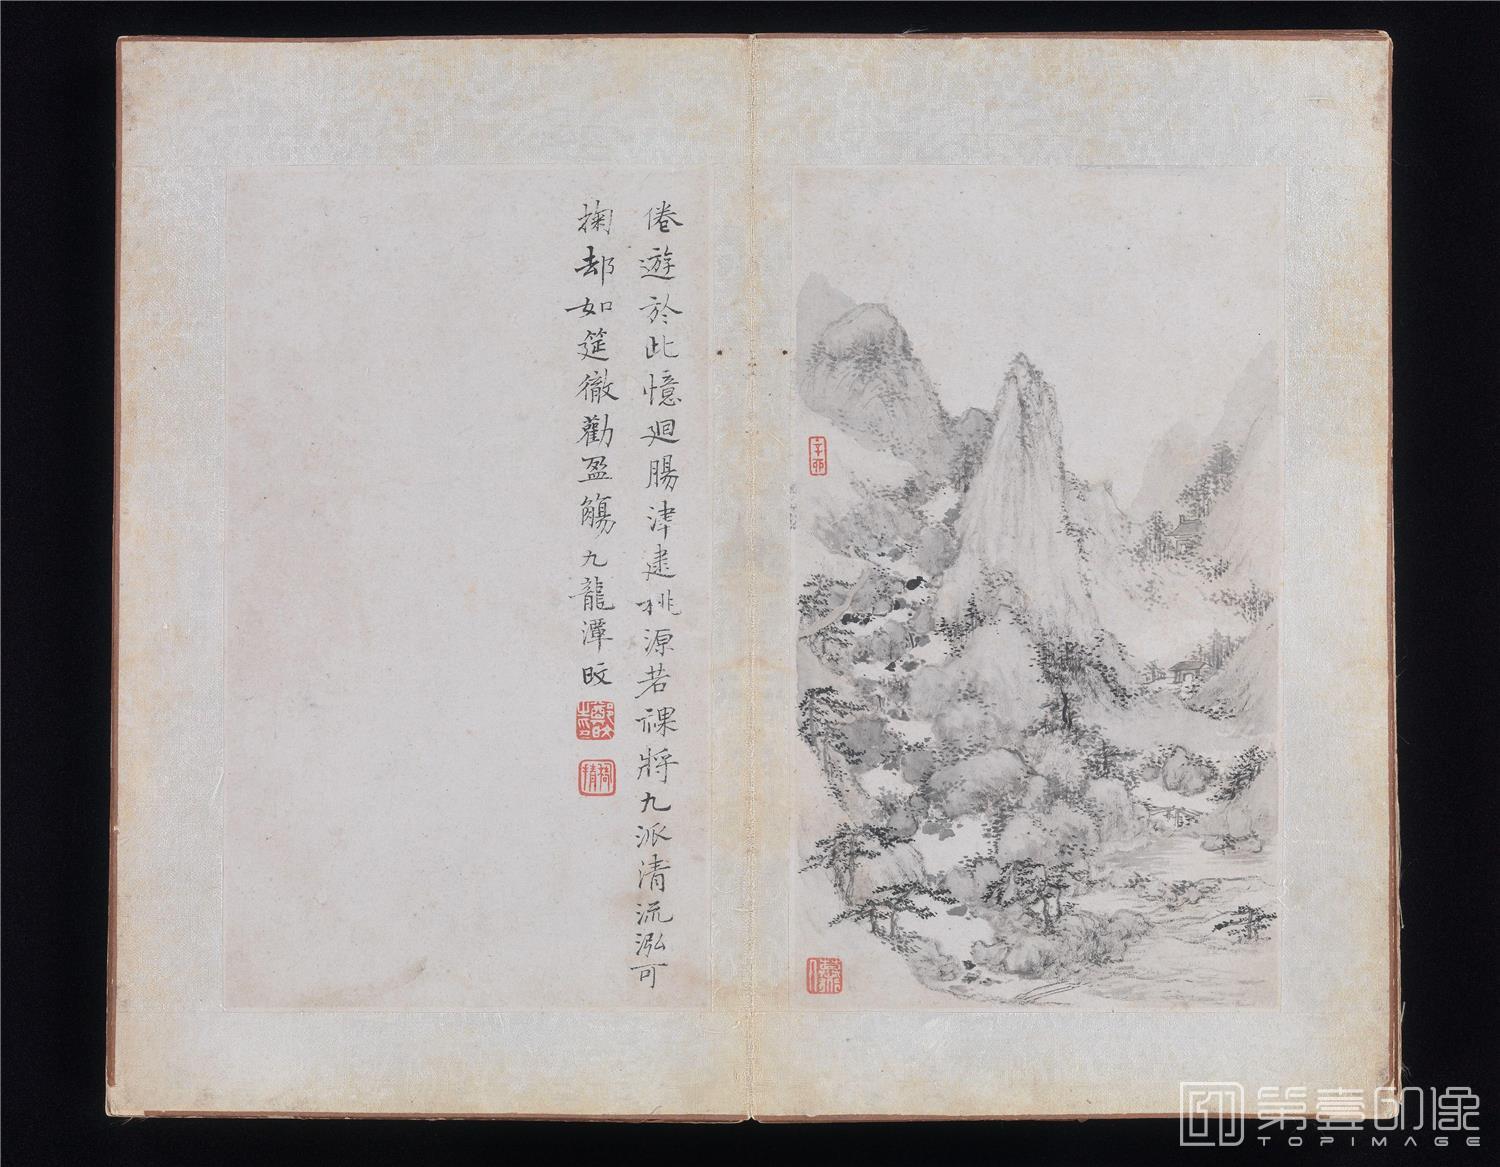 倦遊於此憶廻腸津逮桃源若裸將九派清流泓可
掬却如筵徹勸盈觴九龍潭旼
辛卯
第壹印像
TOPIMAGE